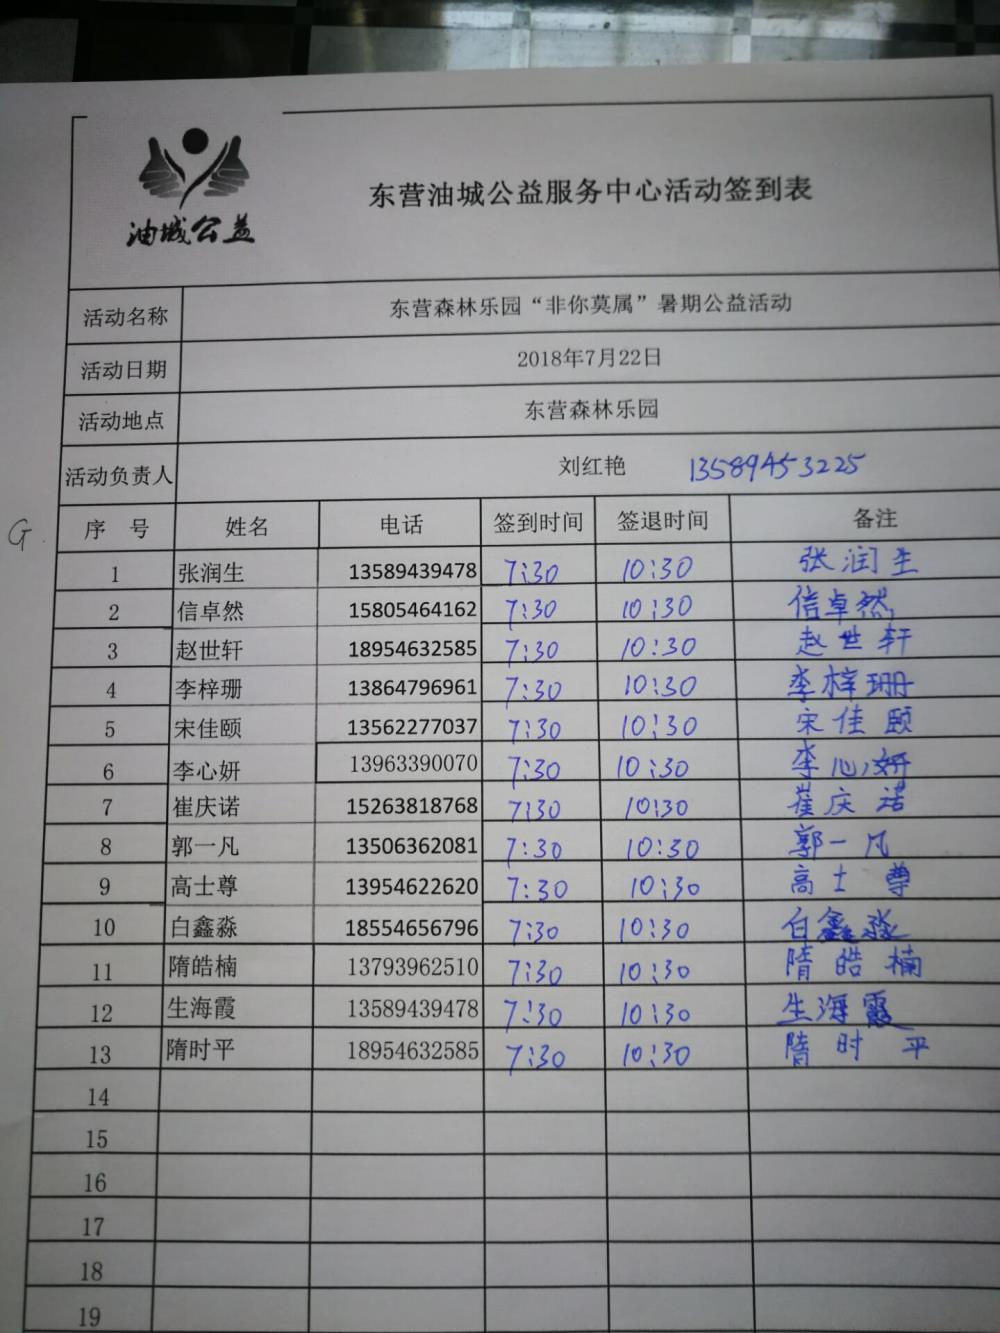 油城公益
东营油城公益服务中心活动签到表
活动名称 东营森林乐园“非你莫属”暑期公益活动
活动日期 2018年7月22日
活动地点 东营森林乐园
活动负责人 刘红艳 13589453225
G.
序 号 姓名 电话 签到时间 签退时间 备注
1 张润生 13589439478 7:30 10:30 张润生
2 信卓然 15805464162 7:30 10:30 信卓然
3 赵世轩 18954632585 7:30 10:30 赵世轩
4 李梓珊 13864796961 7:30 10:30 李梓珊
5 宋佳颐 13562277037 7:30 10:30 宋佳颐
6 李心妍 13963390070 7:30 10:30 李心妍
7 崔庆诺 15263818768 7:30 10:30 崔庆诺
8 郭一凡 13506362081 7:30 10:30 郭一凡
9 高士尊 13954622620 7:30 10:30 高士尊
10 白鑫淼 18554656796 7:30 10:30 白鑫淼
11 隋皓楠 13793962510 7:30 10:30 隋皓楠
12 生海霞 13589439478 7:30 10:30 生海霞
13 隋时平 18954632585 7:30 10:30 隋时平
14
15
16
17
18
19